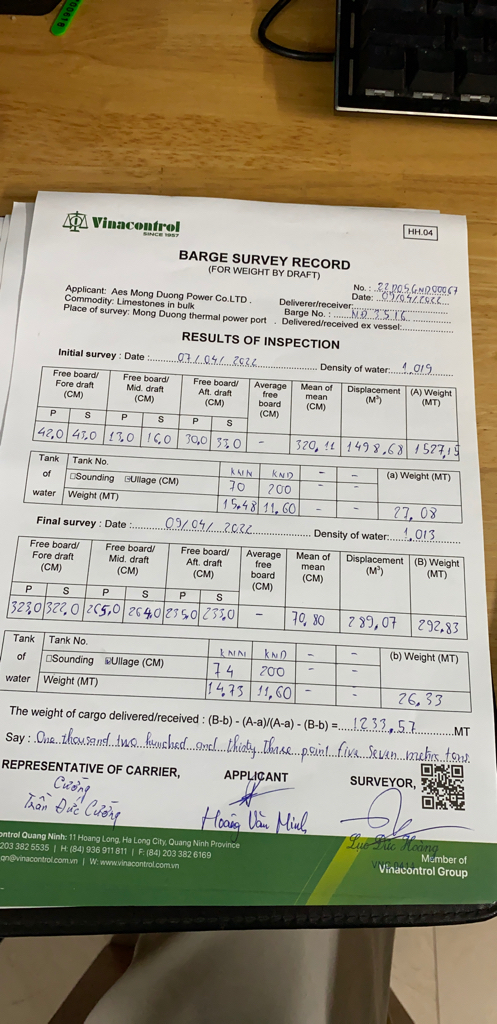 Vinacontrol
SINCE 1957
HH.04
BARGE SURVEY RECORD
(FOR WEIGHT BY DRAFT)
No. : 22D05GND00067
Applicant: Aes Mong Duong Power Co.LTD . Deliverer/receiver: Date: 09/04/2022
Commodity: Limestones in bulk Barge No. : NĐ 3516
Place of survey: Mong Duong thermal power port . Delivered/received ex vessel:
RESULTS OF INSPECTION
Initial survey : Date : 07/04/2022 Density of water: 1,019
Free board/ Fore draft (CM) Free board/ Mid. draft (CM) Free board/ Aft. draft (CM) Average free board (CM) Mean of mean (CM) Displacement (M³) (A) Weight (MT)
P S P S P S
42,0 43,0 13,0 16,0 30,0 33,0 - 320,11 1498,68 1527,15
Tank of water Tank No. KNN KND - - (a) Weight (MT)
Sounding Ullage (CM) 70 200 - -
Weight (MT) 15,48 11,60 - - 27,08
Final survey : Date : 09/04/2022 Density of water: 1,013
Free board/ Fore draft (CM) Free board/ Mid. draft (CM) Free board/ Aft. draft (CM) Average free board (CM) Mean of mean (CM) Displacement (M³) (B) Weight (MT)
P S P S P S
323,0 322,0 265,0 264,0 235,0 233,0 - 70,80 289,07 292,83
Tank of water Tank No. KNN KND - - (b) Weight (MT)
Sounding Ullage (CM) 74 200 - -
Weight (MT) 14,73 11,60 - - 26,33
The weight of cargo delivered/received : (B-b) - (A-a)/(A-a) - (B-b) = 1233,57 MT
Say : One thousand two hundred and thirty three point five seven metric tons
REPRESENTATIVE OF CARRIER, APPLICANT SURVEYOR,
Cường
Trần Đức Cường Hoàng Văn Minh Lục Đức Hoàng
ontrol Quang Ninh: 11 Hoang Long, Ha Long City, Quang Ninh Province
203 382 5535 | H: (84) 936 911 811 | F: (84) 203 382 6169
qn@vinacontrol.com.vn | W: www.vinacontrol.com.vn
Member of
Vinacontrol Group